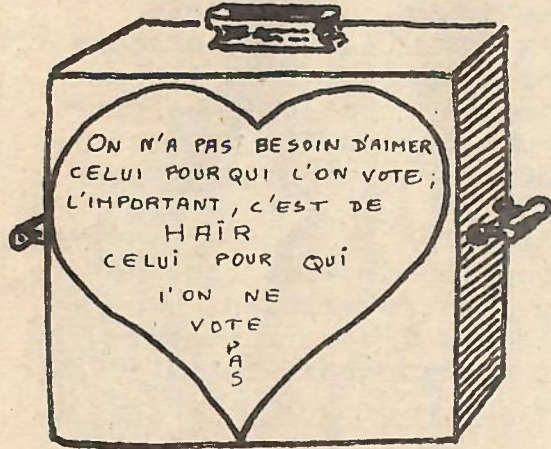 ON N'A PAS BESOIN D'AIMER
CELUI POUR QUI L'ON VOTE;
L'IMPORTANT, C'EST DE
HAÏR
CELUI POUR QUI
l'ON NE
VOTE
PAS